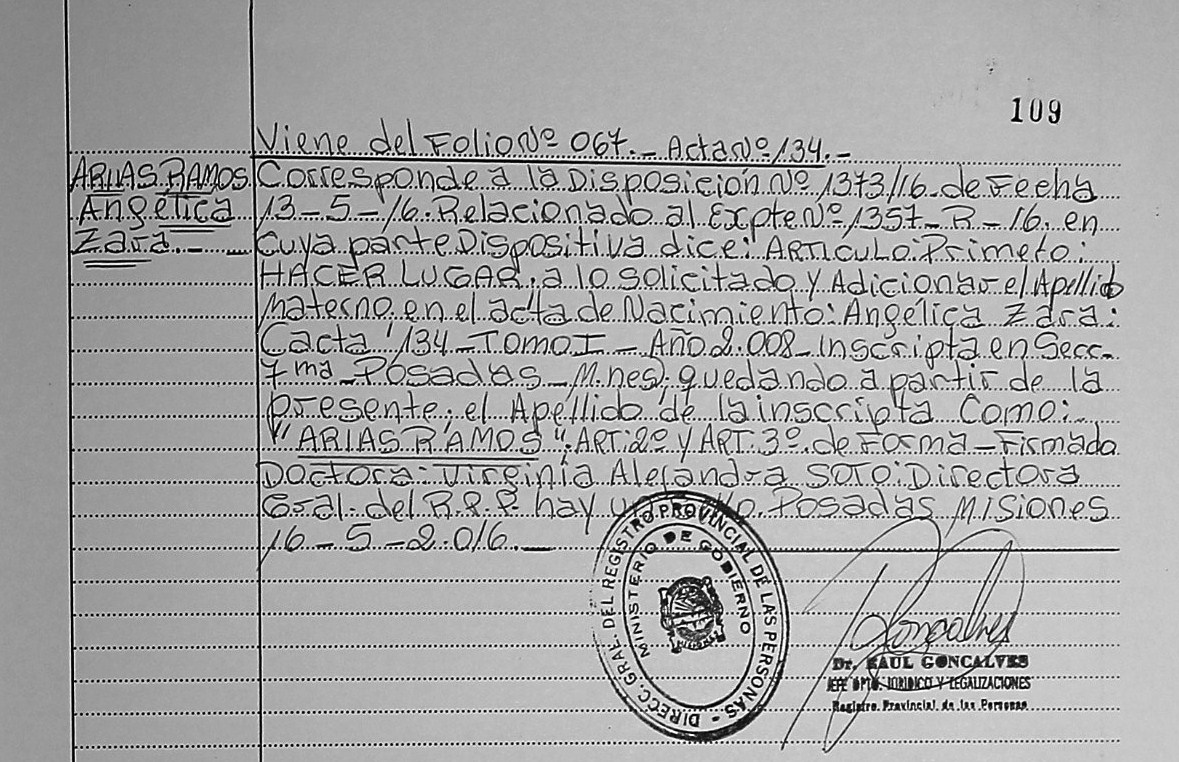 109
Viene del Folio Nº 067._ Acta Nº 134.-
ARIAS RAMOS
Angélica
Zara._
Corresponde a la Disposición Nº 1373/16. de Fecha
13-5-16. Relacionado al Expte Nº 1357-R-16. en
cuya parte Dispositiva dice: ARTICULO: Primero:
HACER LUGAR, a lo solicitado y Adicionar el Apellido
Materno en el acta de Nacimiento: Angélica Zara:
Cacta 134-TOMO I - Año 2.008-Inscripta en Secc-
7ma-Posadas-M.nes); quedando a partir de la
presente, el Apellido de la inscripta Como:
"ARIAS RAMOS". ART: 2º y ART. 3º. de Forma-Firmado
Doctora: Virginia Alejandra SOTO: Directora
Gral. del R.P.P. hay un Posadas Misiones
16-5-2.016._
DIRECC. GRAL. DEL REGISTRO PROVINCIAL DE LAS PERSONAS -
MINISTERIO DE GOBIERNO
Dr. RAUL GONCALVES
JEFE DPTO. JURIDICO Y LEGALIZACIONES
Registro Provincial de las Personas